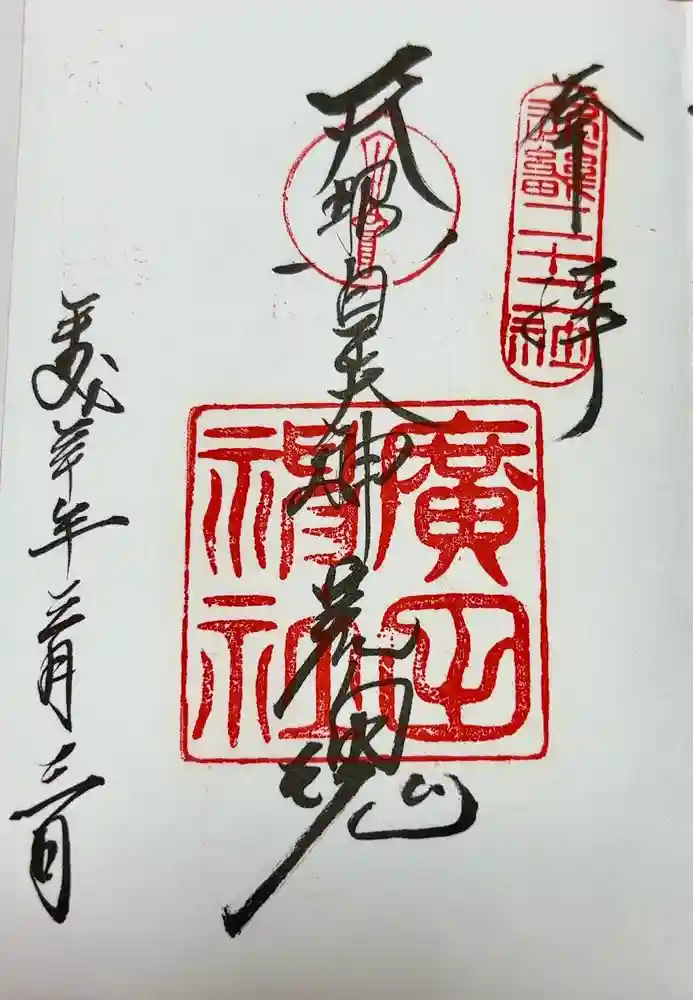 奉拝
二十二社
天照皇大神荒御魂
廣田
神社
年三月三日